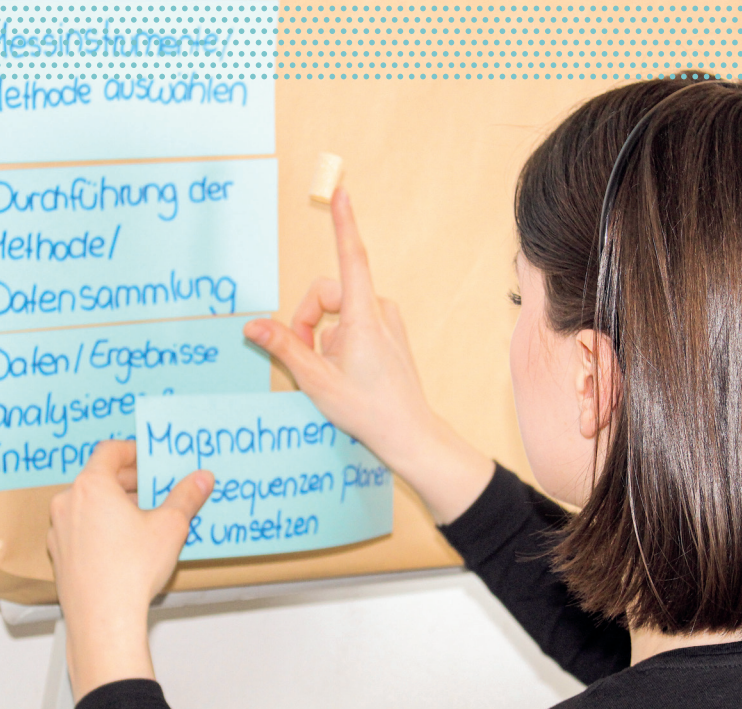 Messinstrumente/
Methode auswählen
Durchführung der
Methode/
Datensammlung
Daten/Ergebnisse
analysieren
interpretie
Maßnahmen
Konsequenzen planen
& umsetzen